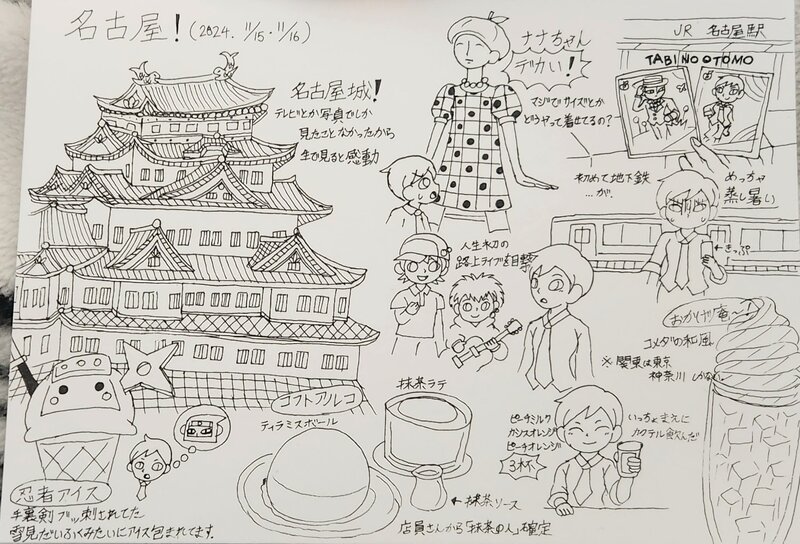 名古屋！(2024. 11/15・11/16)
名古屋城！
テレビとか写真でしか
見たことなかったから
生で見ると感動
ナナちゃん
デカい！
マジでサイズとか
どうやって着せてるの？
JR 名古屋駅
TABI NO OTOMO
初めて地下鉄
…が、
めっちゃ
蒸し暑い
←きっぷ
人生初の
路上ライブを目撃
おかげ庵〜
コメダの和風
※関東は東京
神奈川しかない。
コフトアルコ
ティラミスボール
抹茶ラテ
←抹茶ソース
店員さんから「抹茶の人」確定
ピーチミルク
カシスオレンジ
ピーチオレンジ
3杯
いっちょまえに
カクテル飲んだ
忍者アイス
手裏剣ブッ刺されてた
雪見だいふくみたいにアイス包まれてます。